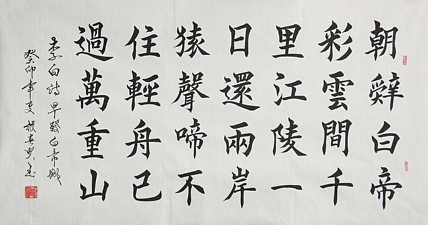 朝辤白帝
彩雲間千
里江陵一
日還兩岸
猿聲啼不
住輕舟已
過萬重山
李白詩早發白帝城
癸卯年夏